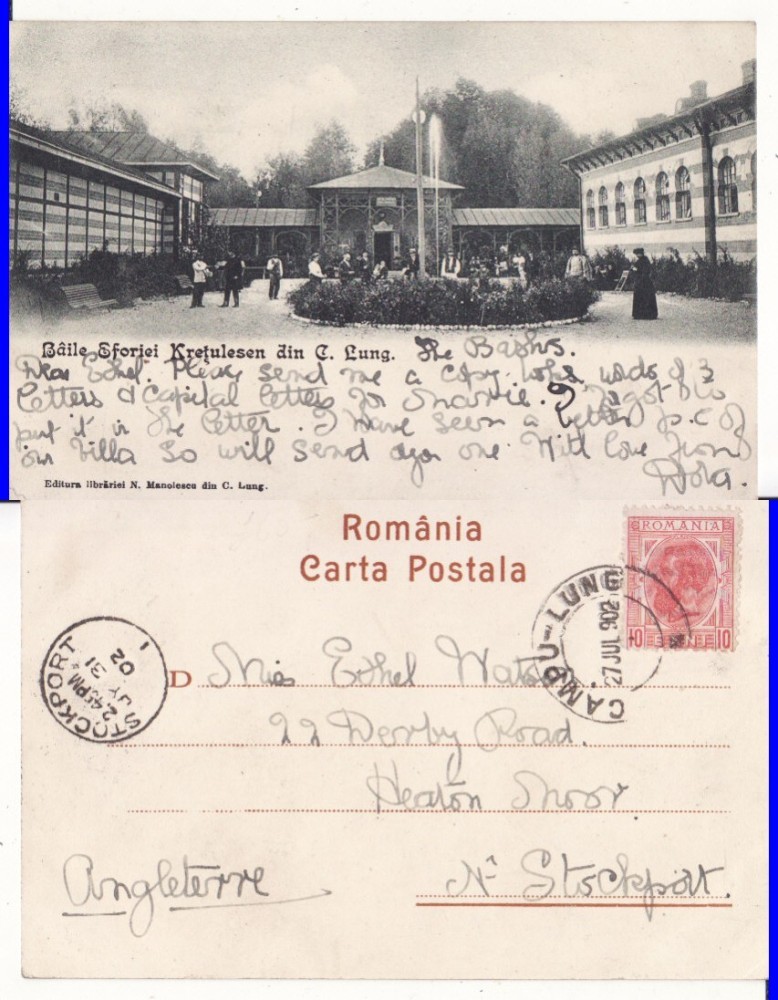 Băile Eforiei Krețulescu din C. Lung. The Baths.
Dear Ethel. Please send me a copy book words of 3
letters & Capital letters for Marie. I forgot to
put it in the letter. I have seen a better p.c of
our Villa so will send you one. With love from
Dora.
Editura librăriei N. Manolescu din C. Lung.
România
Carta Postala
ROMANIA
10 BANI 10
CAMPU-LUNG
27 JUL 902
STOCKPORT
2.45PM
JY 31
02
1
D Miss Ethel
22 Derby Road.
Heaton Moor
Nr Stockport.
Angleterre